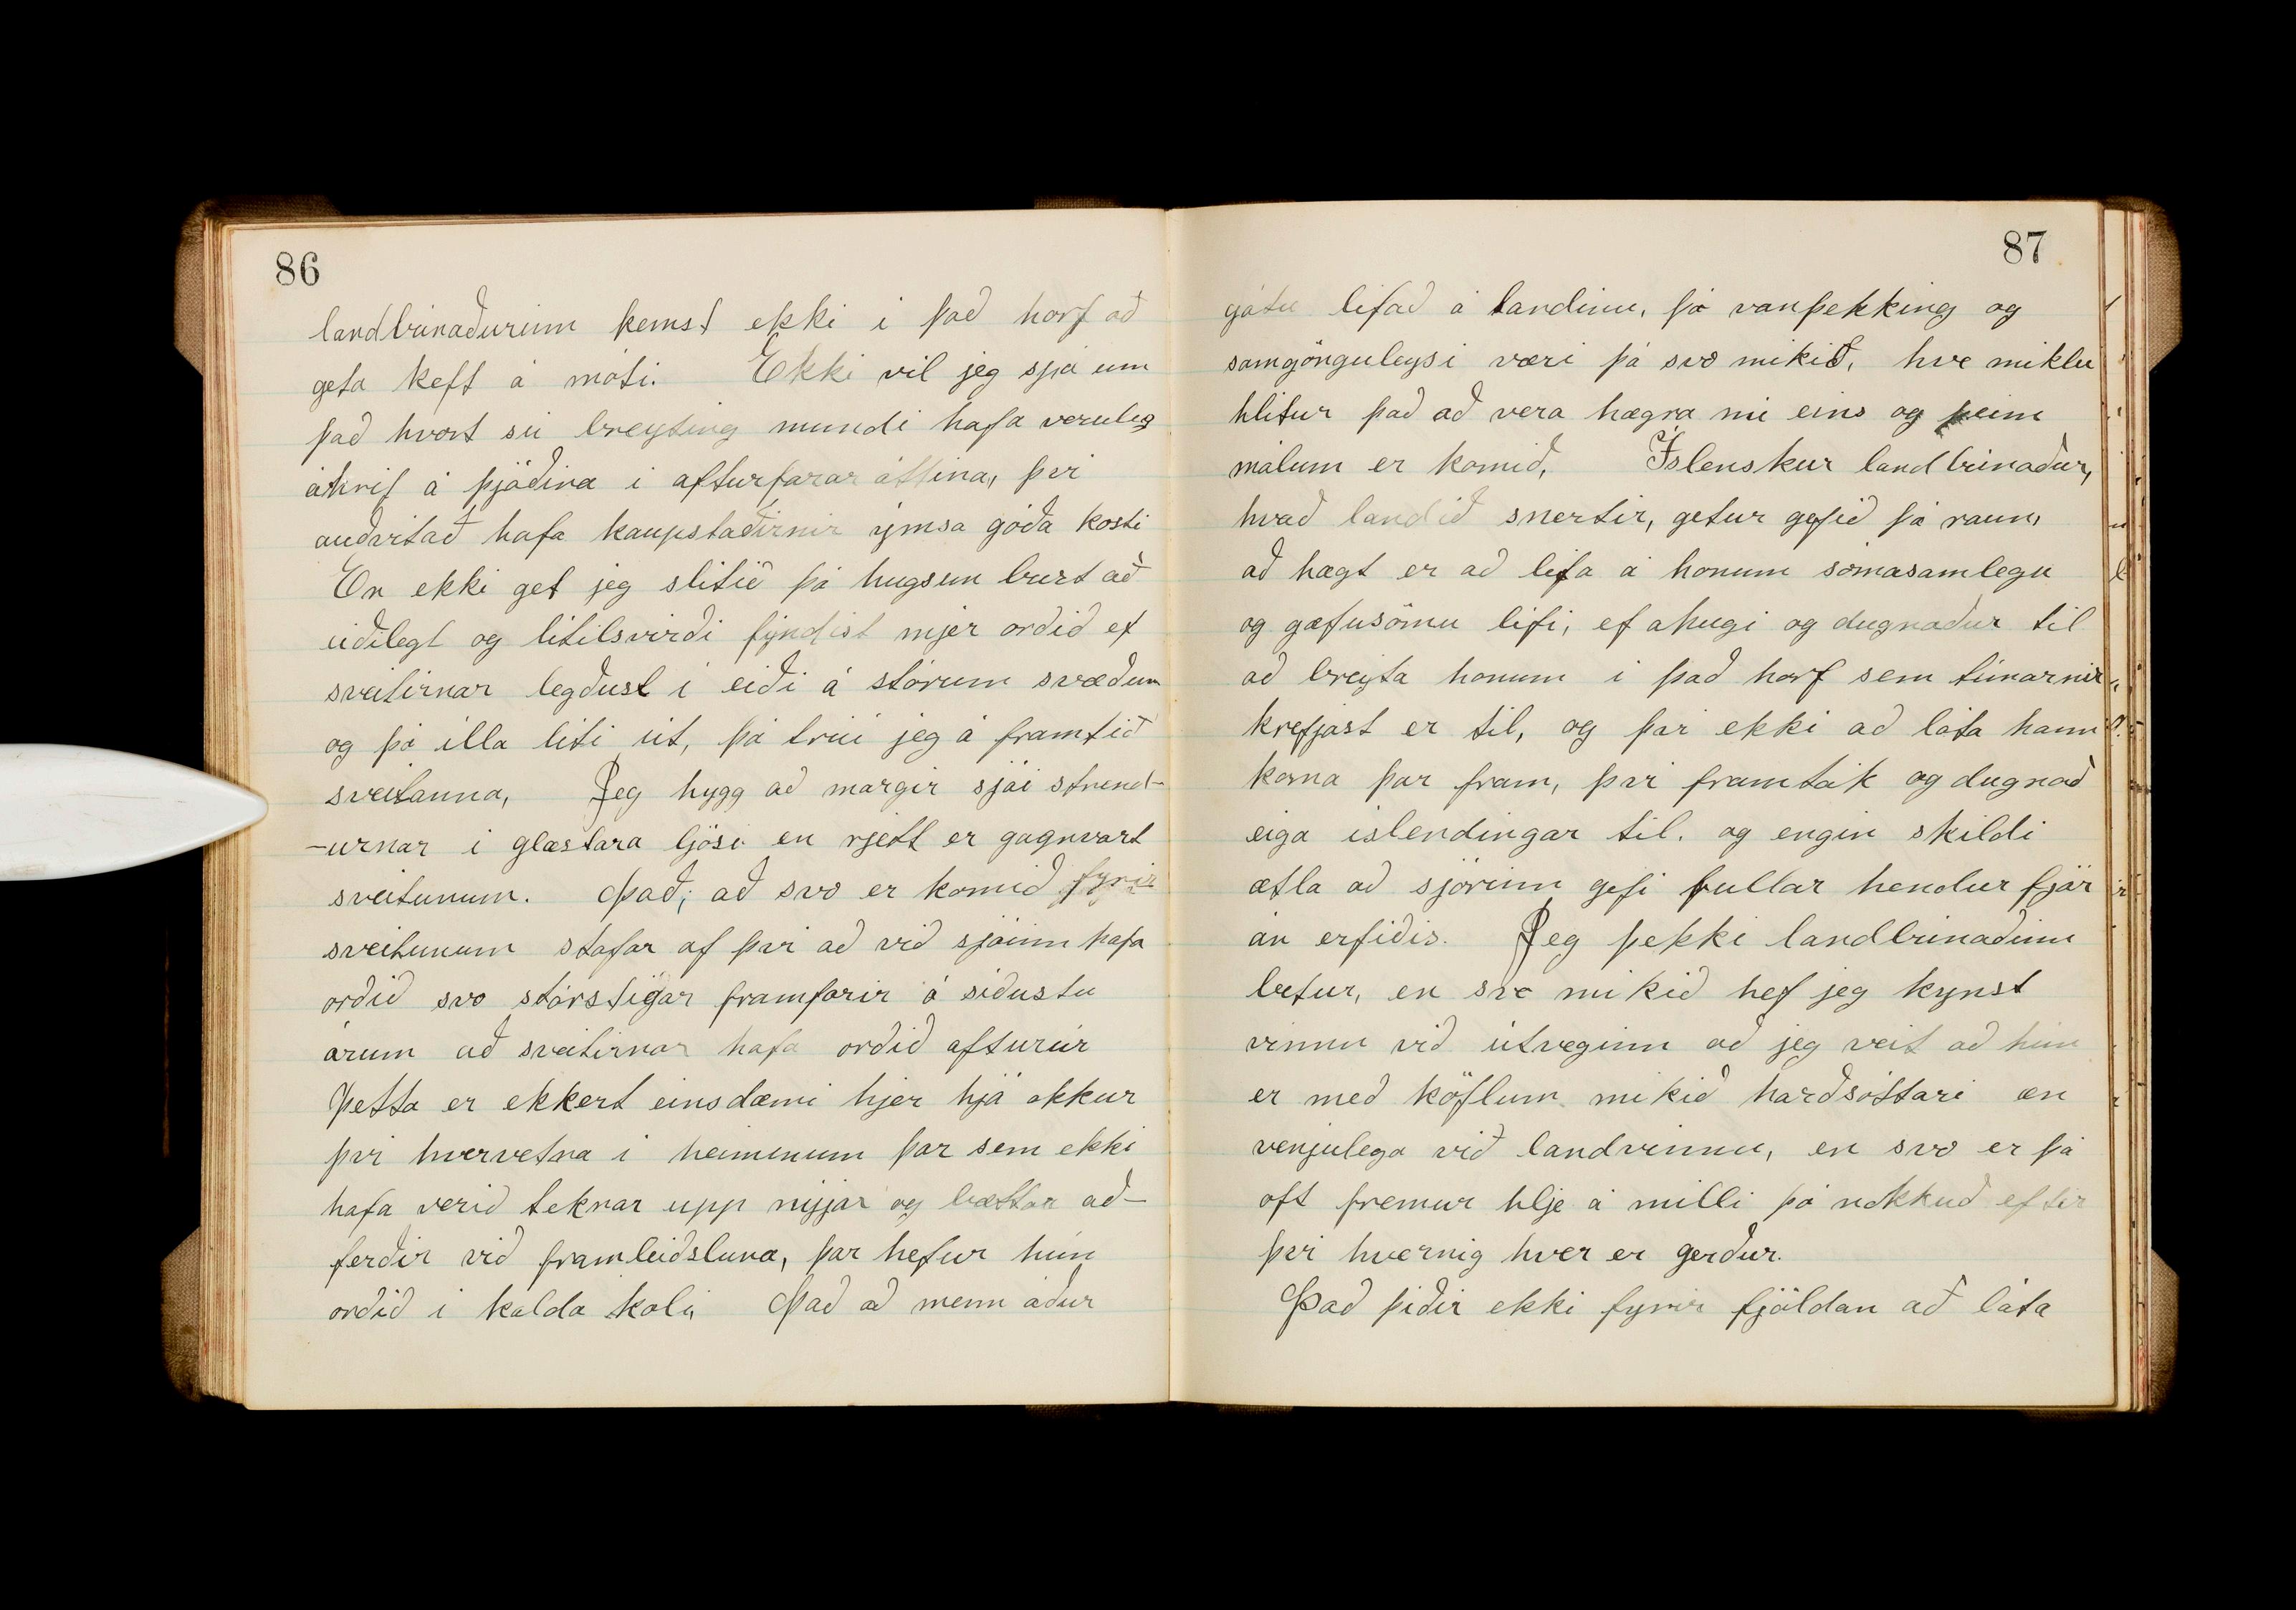 86
landbúnaðurinn kemst ekki í það horf að
geta keft á móti. Ekki vil jeg spá um
það hvort sú breyting mundi hafa veruleg
áhrif á þjóðina í afturfarar áttina, því
auðvitað hafa kaupstaðirnir ýmsa góða kosti
En ekki get jeg slitið þá hugsun burt að
úðilegt og lítilsvirði fyndist mjer orðið ef
sveitirnar legðust í eiði á stórum svæðum
og þó illa líti út, þá trúi jeg á framtíð
sveitanna, Jeg hygg að margir sjái strend-
-urnar í glæstara ljósi en rjett er gagnvart
sveitunum. Það; að svo er komið fyrir
sveitunum stafar af því að við sjóinn hafa
orðið svo stórstígar framfarir á síðustu
árum að sveitirnar hafa orðið afturúr
Þetta er ekkert einsdæmi hjer hjá okkur
því hvervetna í heiminum þar sem ekki
hafa verið teknar upp nýjar og bættar að-
ferðir við framleiðsluna, þar hefur hún
orðið í kalda koli, Það að menn áður
87
gátu lifað á landinu, þó vanþekking og
samgönguleysi væri þá svo mikið, hve miklu
hlítur það að vera hægra nú eins og þeim
málum er komið, Íslenskur landbúnaður,
hvað landið snertir, getur gefið þá raun,
að hægt er að lifa á honum sómasamlegu
og gæfusömu lífi, ef áhugi og dugnaður til
að breyta honum í það horf sem tímarnir
krefjast er til, og því ekki að láta hann
koma þar fram, því framtak og dugnað
eiga íslendingar til. og engin skildi
ætla að sjórinn gefi fullar hendur fjár
án erfiðis. Jeg þekki landbúnaðinn
betur, en svo mikið hef jeg kynst
vinnu við útveginn að jeg veit að hún
er með köflum mikið harðsóttari en
venjulega við landvinnu, en svo er þá
oft fremur hlje á milli þó nokkuð eftir
því hvernig hver er gerður.
Það þíðir ekki fyrir fjöldan að láta